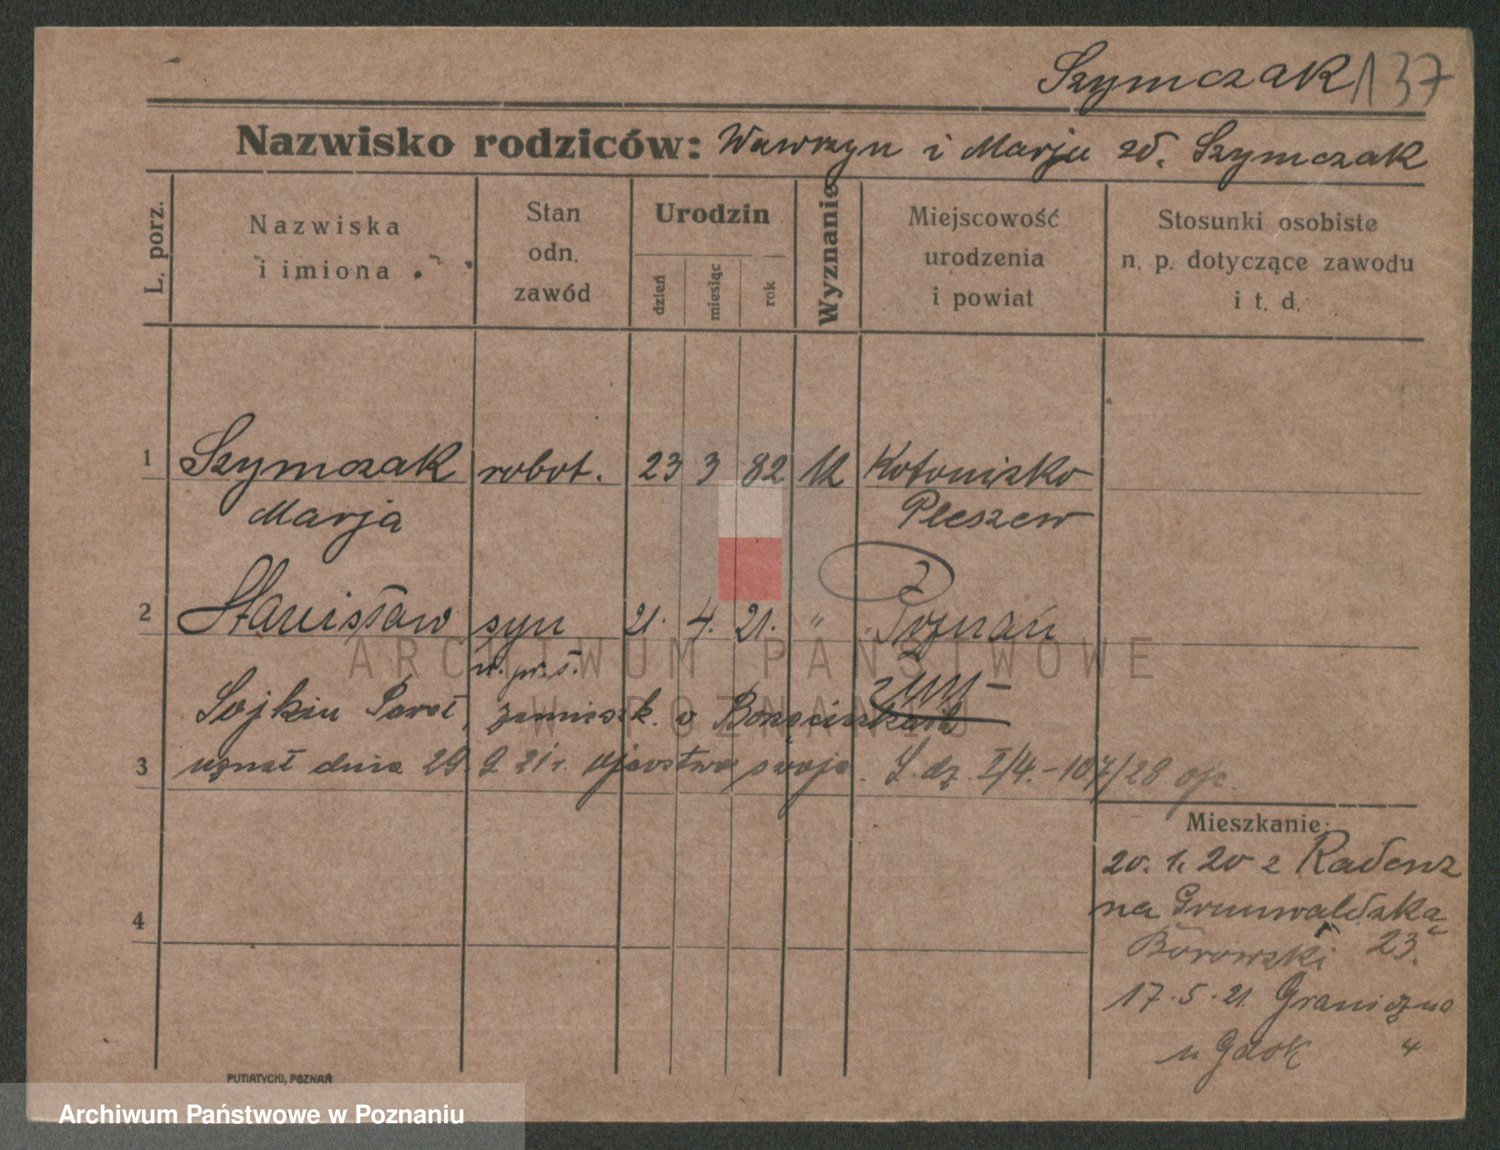 Szymczak 137
Nazwisko rodziców: Wawrzyn i Marja zd. Szymczak
L. porz.
Nazwiska i imiona
Stan odn. zawód
Urodzin
dzień
miesiąc
rok
Wyznanie
Miejscowość urodzenia i powiat
Stosunki osobiste n. p. dotyczące zawodu i t. d.
1 Szymczak robot. 23 3 82
Marja Pleszew
2 Stanisław syn 21. 4. 21. " Poznań
n. pr. ś.
zamieszk. w
3 uznał dnia 29. 9 21 r. ojcostwo swoje. L. dz. I/4.-107/28
4
Mieszkanie:
20. 1. 20 z Radenz
na Grunwaldzką
Borowski 23.
17. 5. 21. Graniczna
u 4
PUTIATYCKI, POZNAŃ
ARCHIWUM PAŃSTWOWE
W POZNANIU
Archiwum Państwowe w Poznaniu